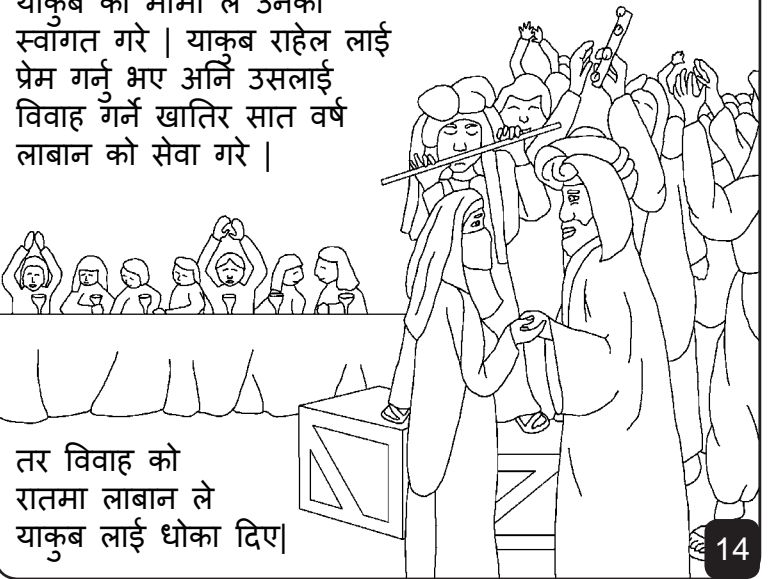 याकुब को मामा ले उनको
स्वागत गरे | याकुब राहेल लाई
प्रेम गर्नु भए अनि उसलाई
विवाह गर्ने खातिर सात वर्ष
लाबान को सेवा गरे |
तर विवाह को
रातमा लाबान ले
याकुब लाई धोका दिए|
14